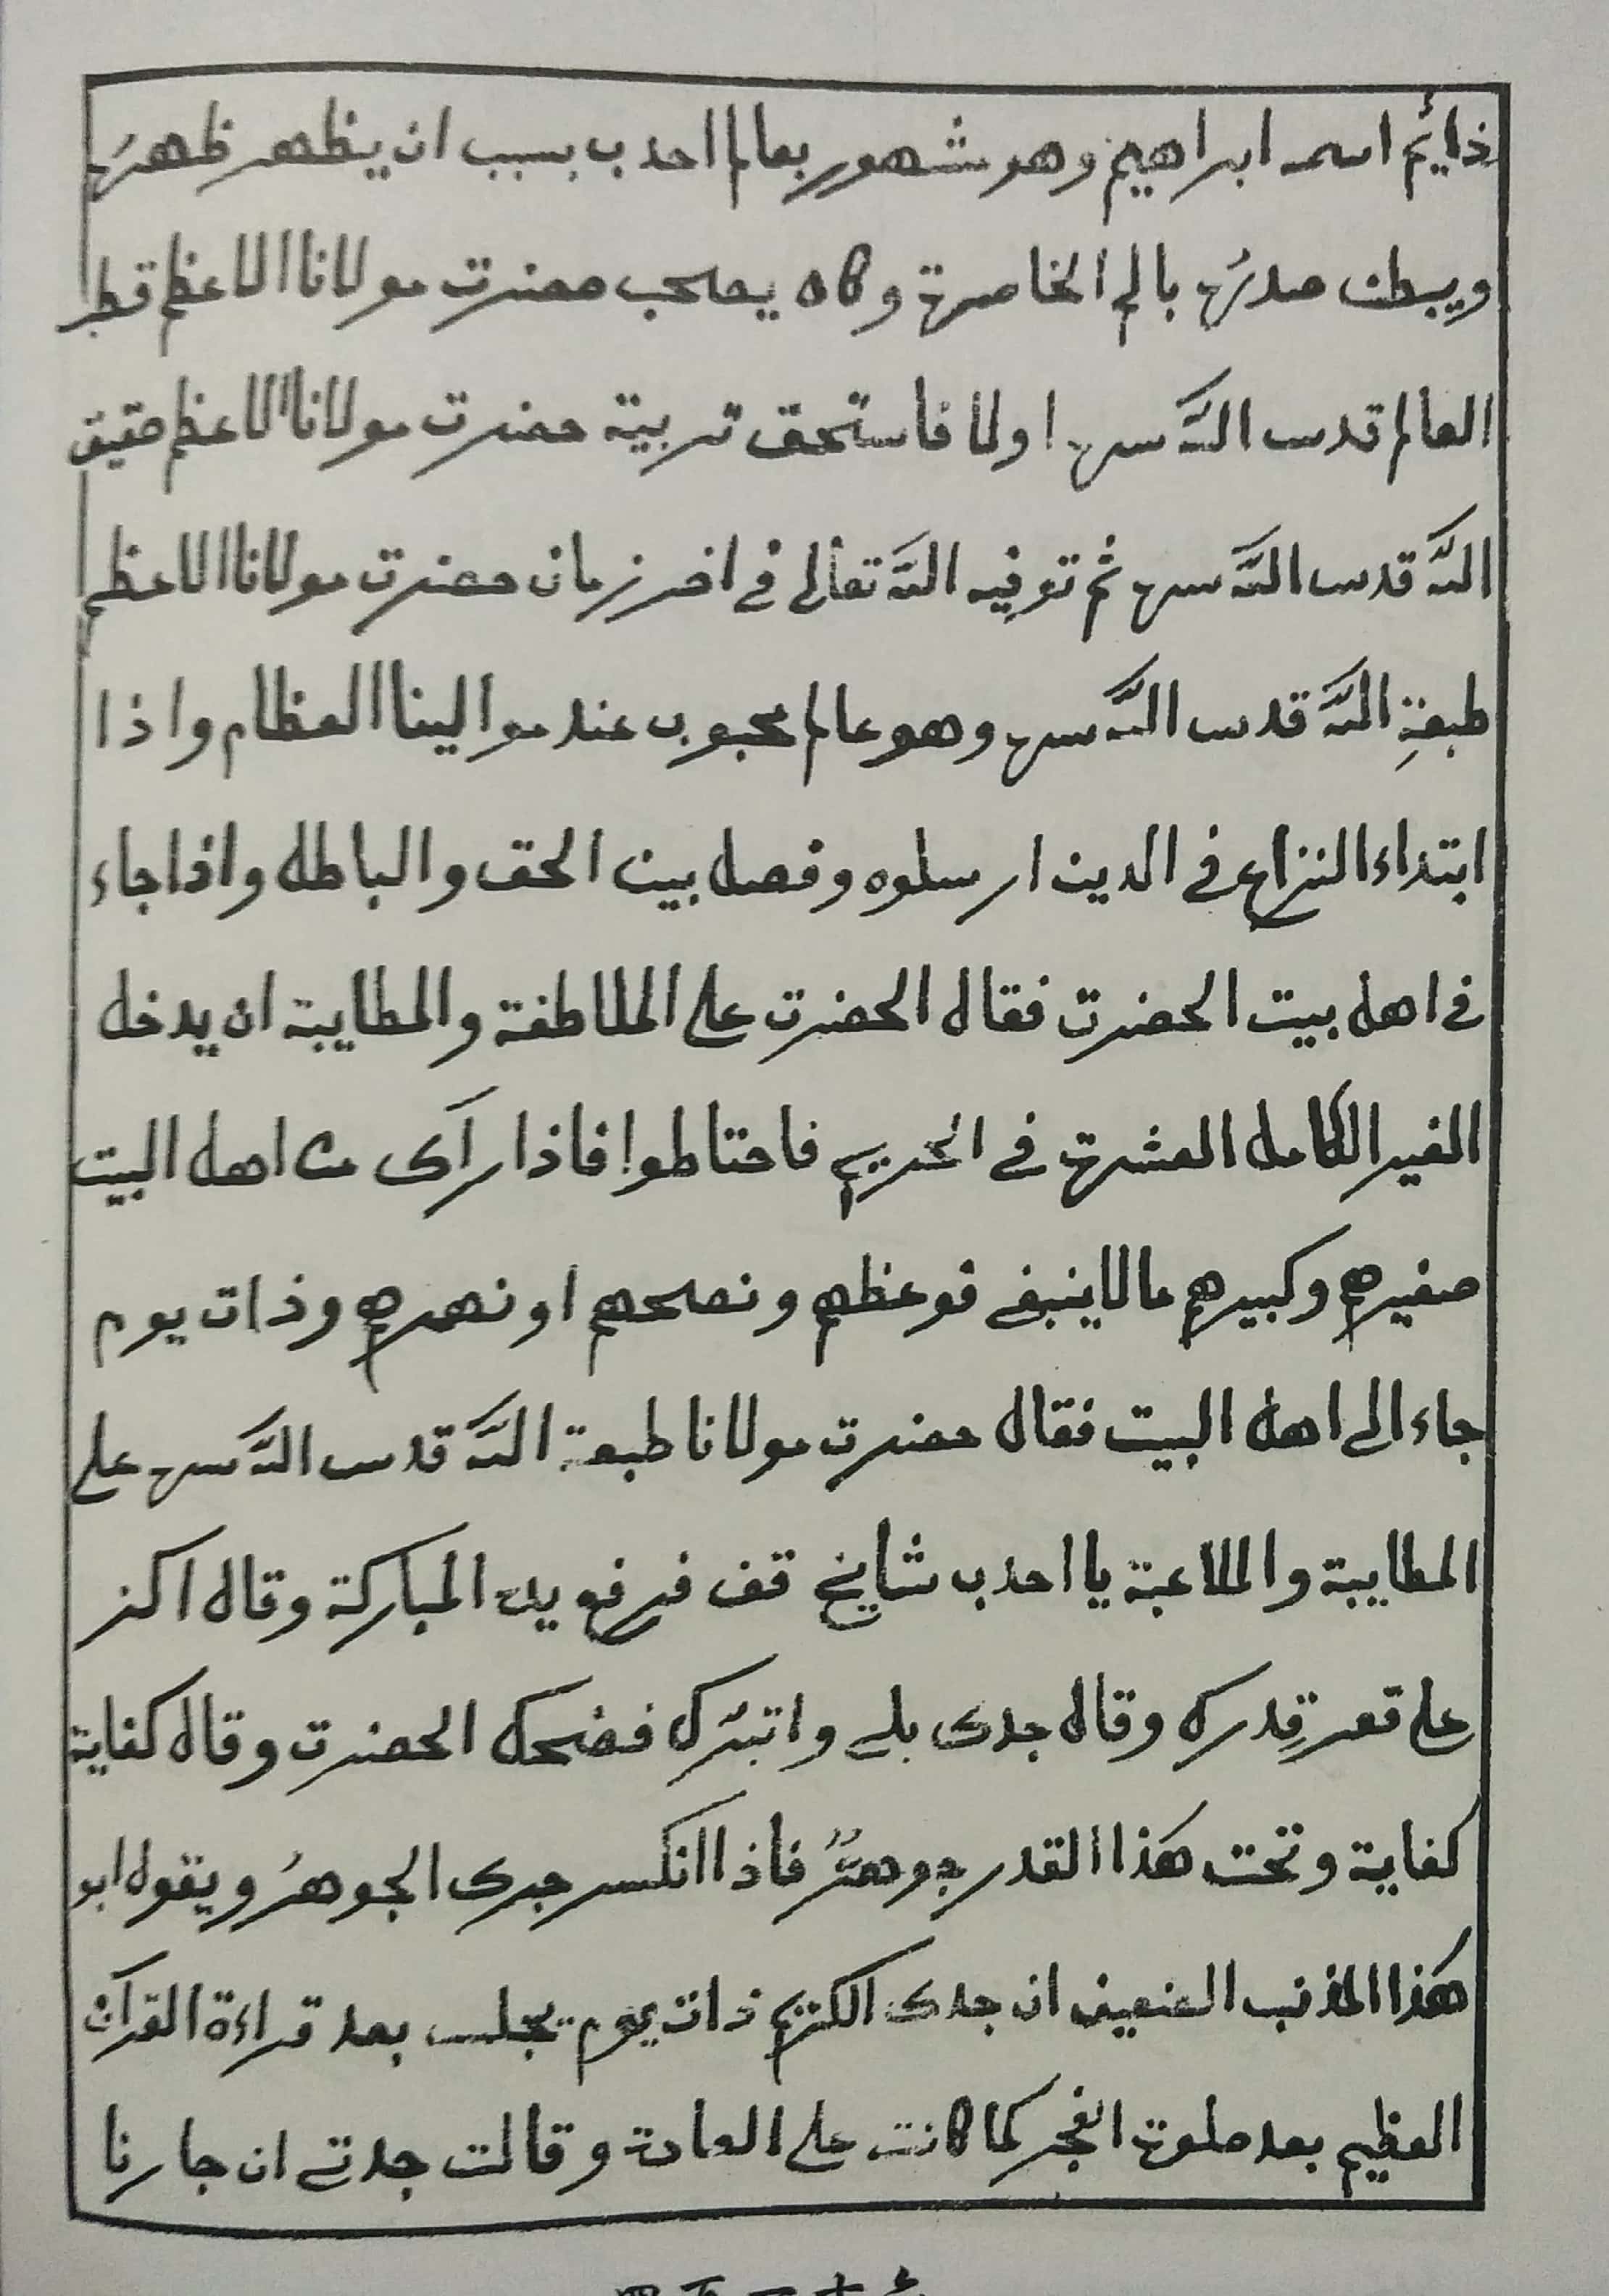 ذائم اسمه ابراهيم وهو مشهور بعالم احدب بسبب ان يظهر ظهره
ويبطن صدره بالم الخاصرة وكان يصحب حضرت مولانا الاعظم قطب
العالم قدس الله سره اولا فاستحق تربية حضرت مولانا الاعظم حقيق
الله قدس الله سره ثم توفيه الله تعالى في اخر زمان حضرت مولانا الاعظم
طبعة الله قدس الله سره وهو عالم محبوب عند موالينا العظام واذا
ابتداء النزاع في الدين ارسلوه وفصل بين الحق والباطل واذا جاء
في اهل بيت الحضرت فقال الحضرت على الملاطفة والمطايبة ان يدخل
الغير الكامل العشرة في الحريم فاحتاطوا فاذا رآى من اهل البيت
صغيرهم وكبيرهم ما لا ينبغي فوعظهم ونصحهم او نهرهم وذات يوم
جاء الى اهل البيت فقال حضرت مولانا طبعة الله قدس الله سره على
المطايبة والملاعبة يا احدب شايخ قف فرفع يده المباركة وقال اكنز
على قعر قدرك وقال جدى بلى واتبرك فضحك الحضرت وقال كفاية
كفاية وتحت هذا القدر جوهر فاذا انكسر جرى الجوهر ويقول ابو
هذا المذنب الضعيف ان جدى الكريم ذات يوم يجلس بعد قراءة القرآن
العظيم بعد صلوة الفجر كما كانت على العادة وقالت جدتى ان جارنا